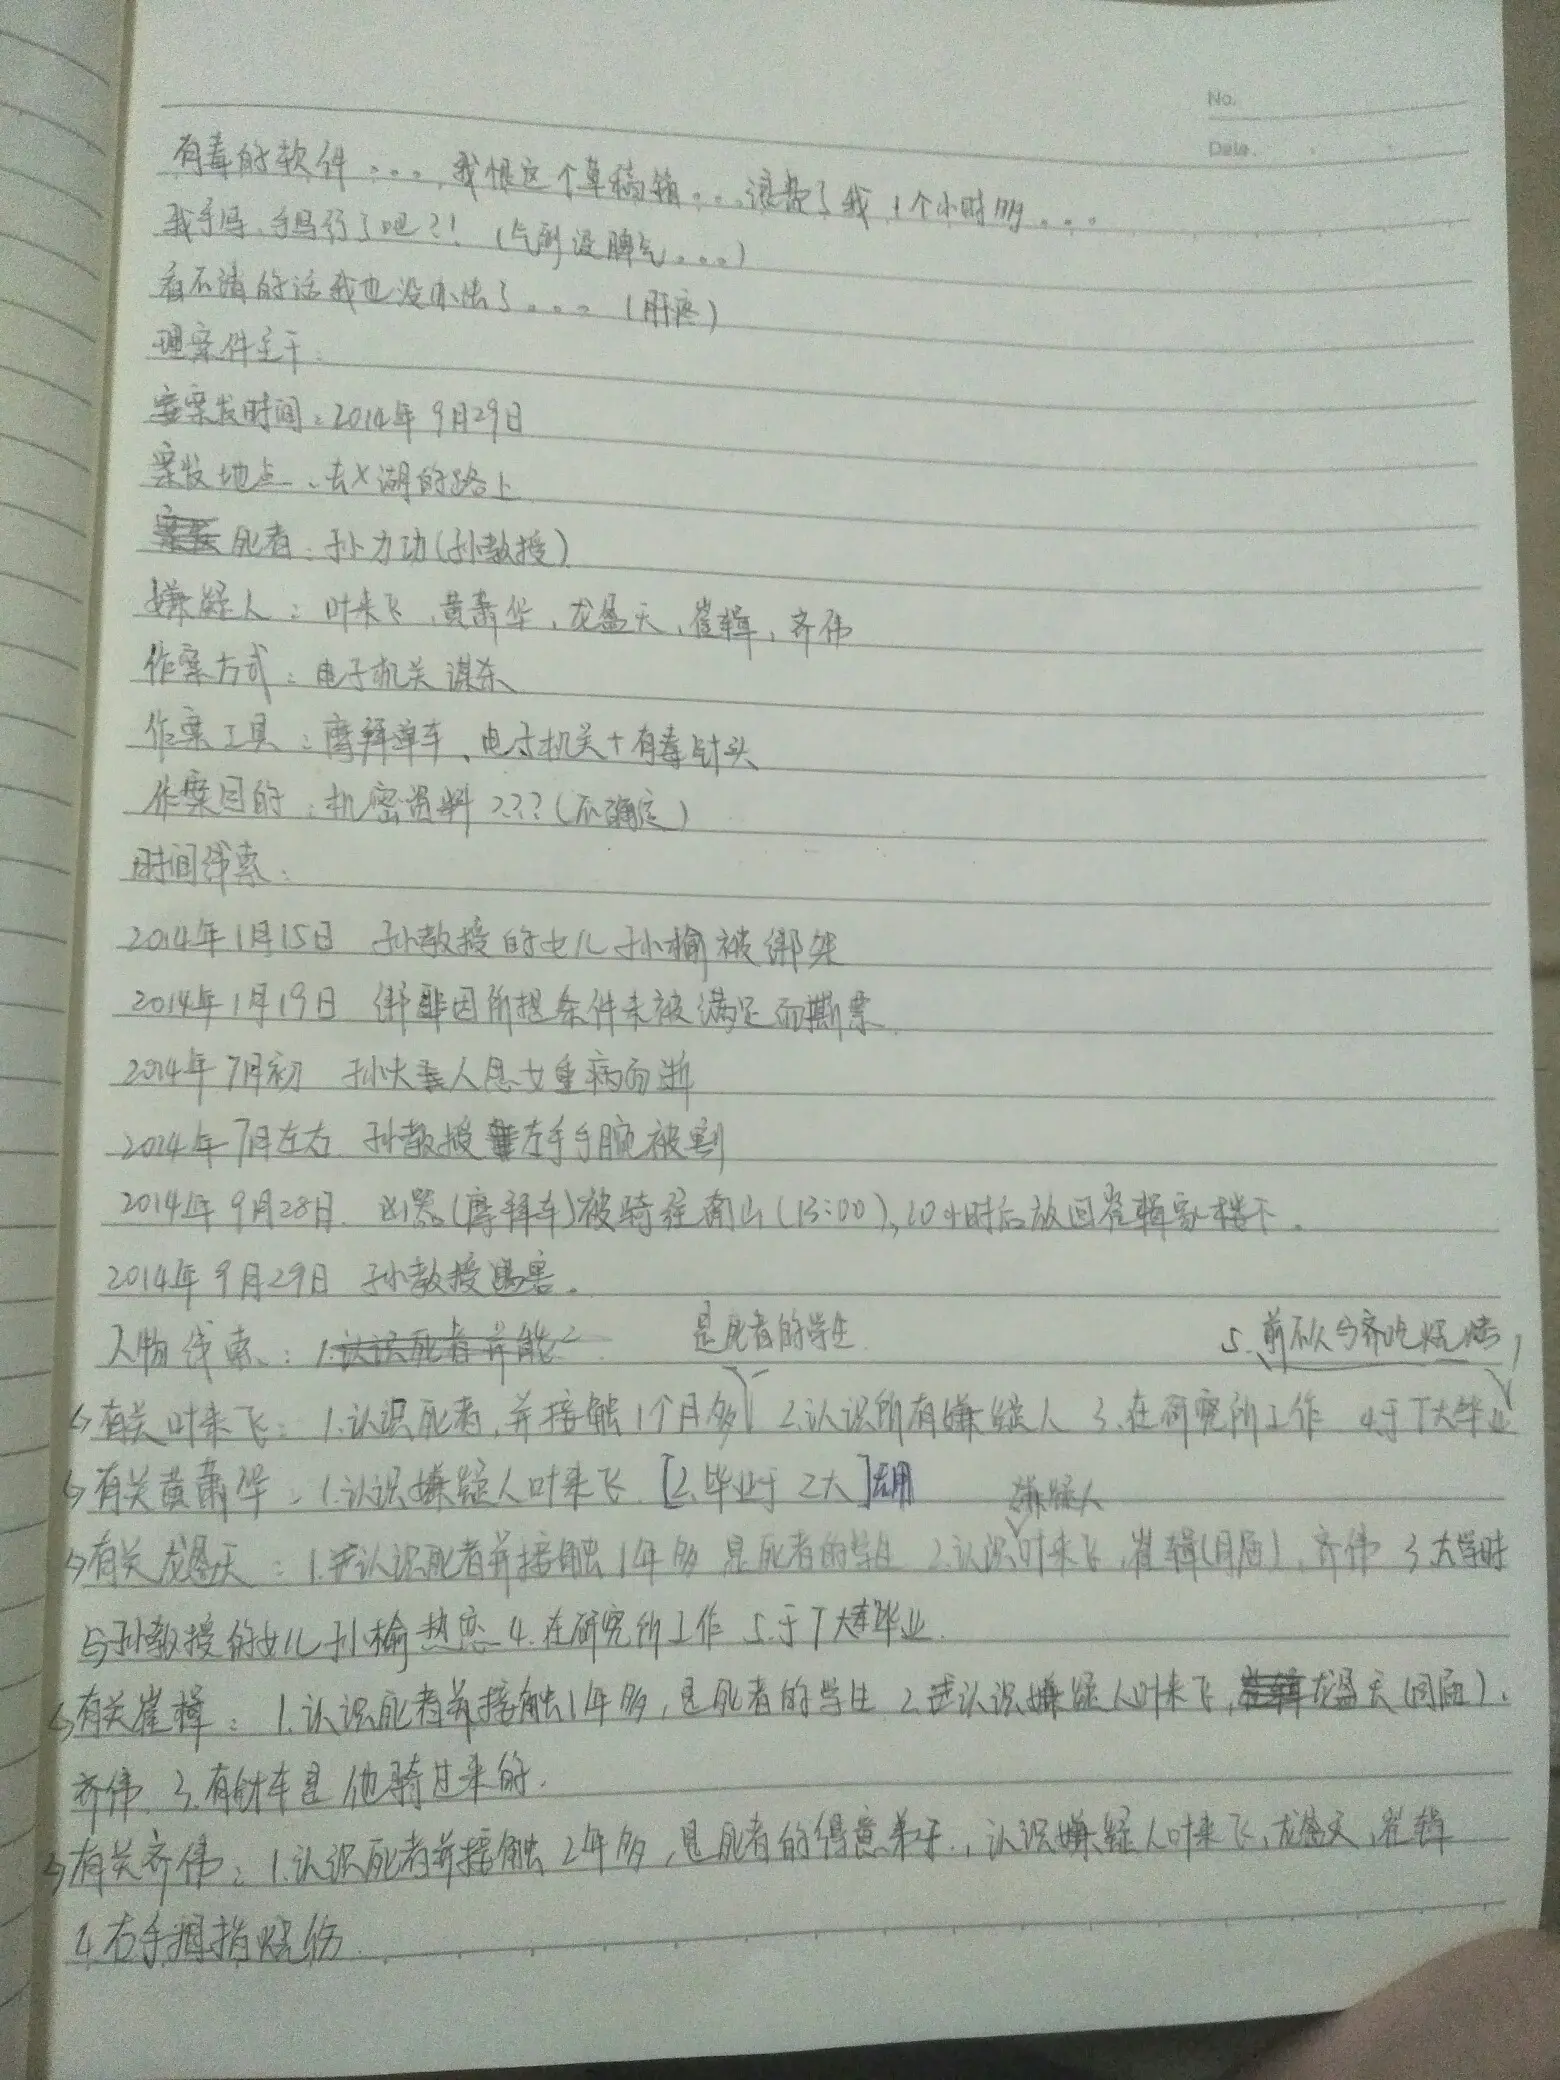 No.
Date.
有毒的软件。。。，我恨这个草稿箱。。。浪费了我1个小时多。。。
我手写，手写行了吧？！（气到没脾气。。。）
看不清的话我也没办法了。。。。（肝疼）
理案件主干：
案发时间：2014年9月29日
案发地点：去X湖的路上
死者：孙力功（孙教授）
嫌疑人：叶来飞，黄萧华，龙盛天，崔辑，齐伟
作案方式：电子机关谋杀
作案工具：摩拜单车、电子机关+有毒针头
作案目的：机密资料？？？（不确定）
时间线索：
2014年1月15日 孙教授的女儿孙榆被绑架
2014年1月19日 绑匪因所提条件未被满足而撕票
2014年7月初 孙夫人思女重病而逝
2014年7月左右 孙教授左手手腕被割
2014年9月28日 凶器（摩拜车）被骑往南山（13:00），10小时后放回崔辑家楼下。
2014年9月29日 孙教授遇害。
人物线索：1.认识死者并能
是死者的学生
5.前不久与齐吃烧烤
↳有关叶来飞：1.认识死者，并接触1个月多 2.认识所有嫌疑人 3.在研究所工作 4.于T大毕业
↳有关黄萧华：1.认识嫌疑人叶来飞 [2.毕业于Z大]
嫌疑人
↳有关龙盛天：1.认识死者并接触1年多 是死者的学生 2.认识叶来飞，崔辑（同届），齐伟 3.大学时
与孙教授的女儿孙榆热恋 4.在研究所工作 5.于T大毕业
↳有关崔辑：1.认识死者并接触1年多，是死者的学生 2.认识嫌疑人叶来飞，龙盛天（同届），
齐伟 3.有针车是他骑过来的
↳有关齐伟：1.认识死者并接触2年多，是死者的得意弟子，认识嫌疑人叶来飞，龙盛天，崔辑
2.右手拇指烧伤